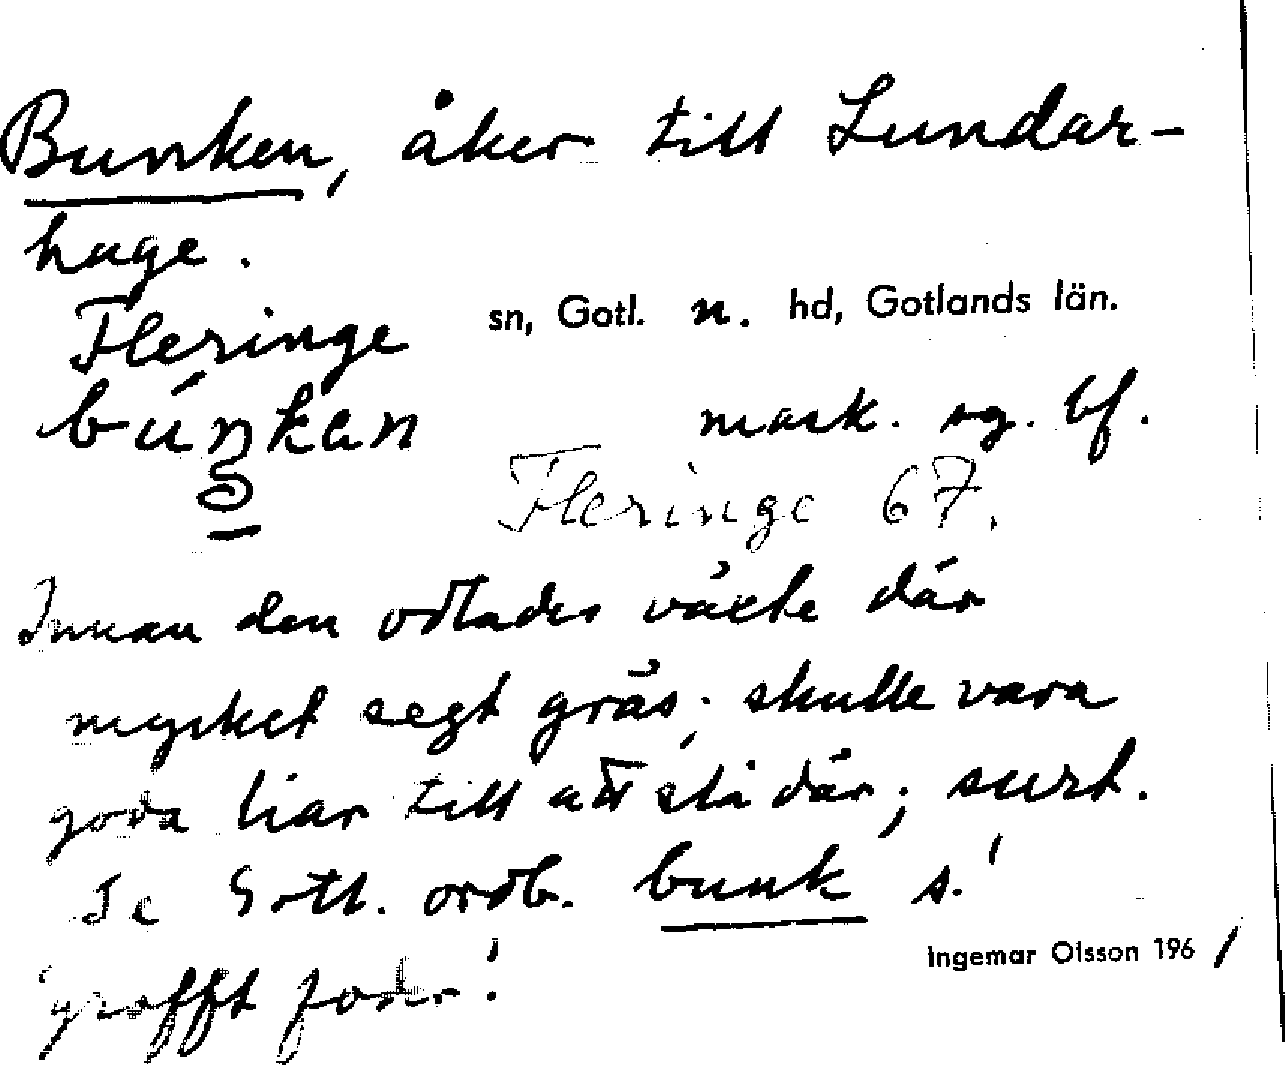 Bunken, åker till Lundar-
hage.
Fleringe sn, Gotl. n. hd, Gotlands län.
búnkan mask. sg. bf.
Fleringe 67.
Innan den odlades växte där
mycket segt gräs; skulle vara
goda liar till att slå där; surt.
Se Gotl. ordb. bunk s.'
'grofft foder'.
Ingemar Olsson 1961